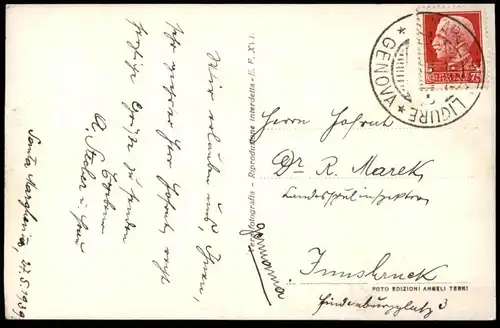 Wir erlauben uns, Ihnen,
sehr geehrter Herr Hofrat, recht
herzliche Grüße zu senden
Santa Margherita, 27.5.1939
Vera Fotografia - Riproduzione interdetta - E. F. XVI.
LIGURE * GENOVA *
75
Herrn Hofrat
Dr. R. Marek
Landesschulinspektor
Innsbruck
Germania
FOTO EDIZIONI ANGELI TERRI
Hindenburgplatz 3